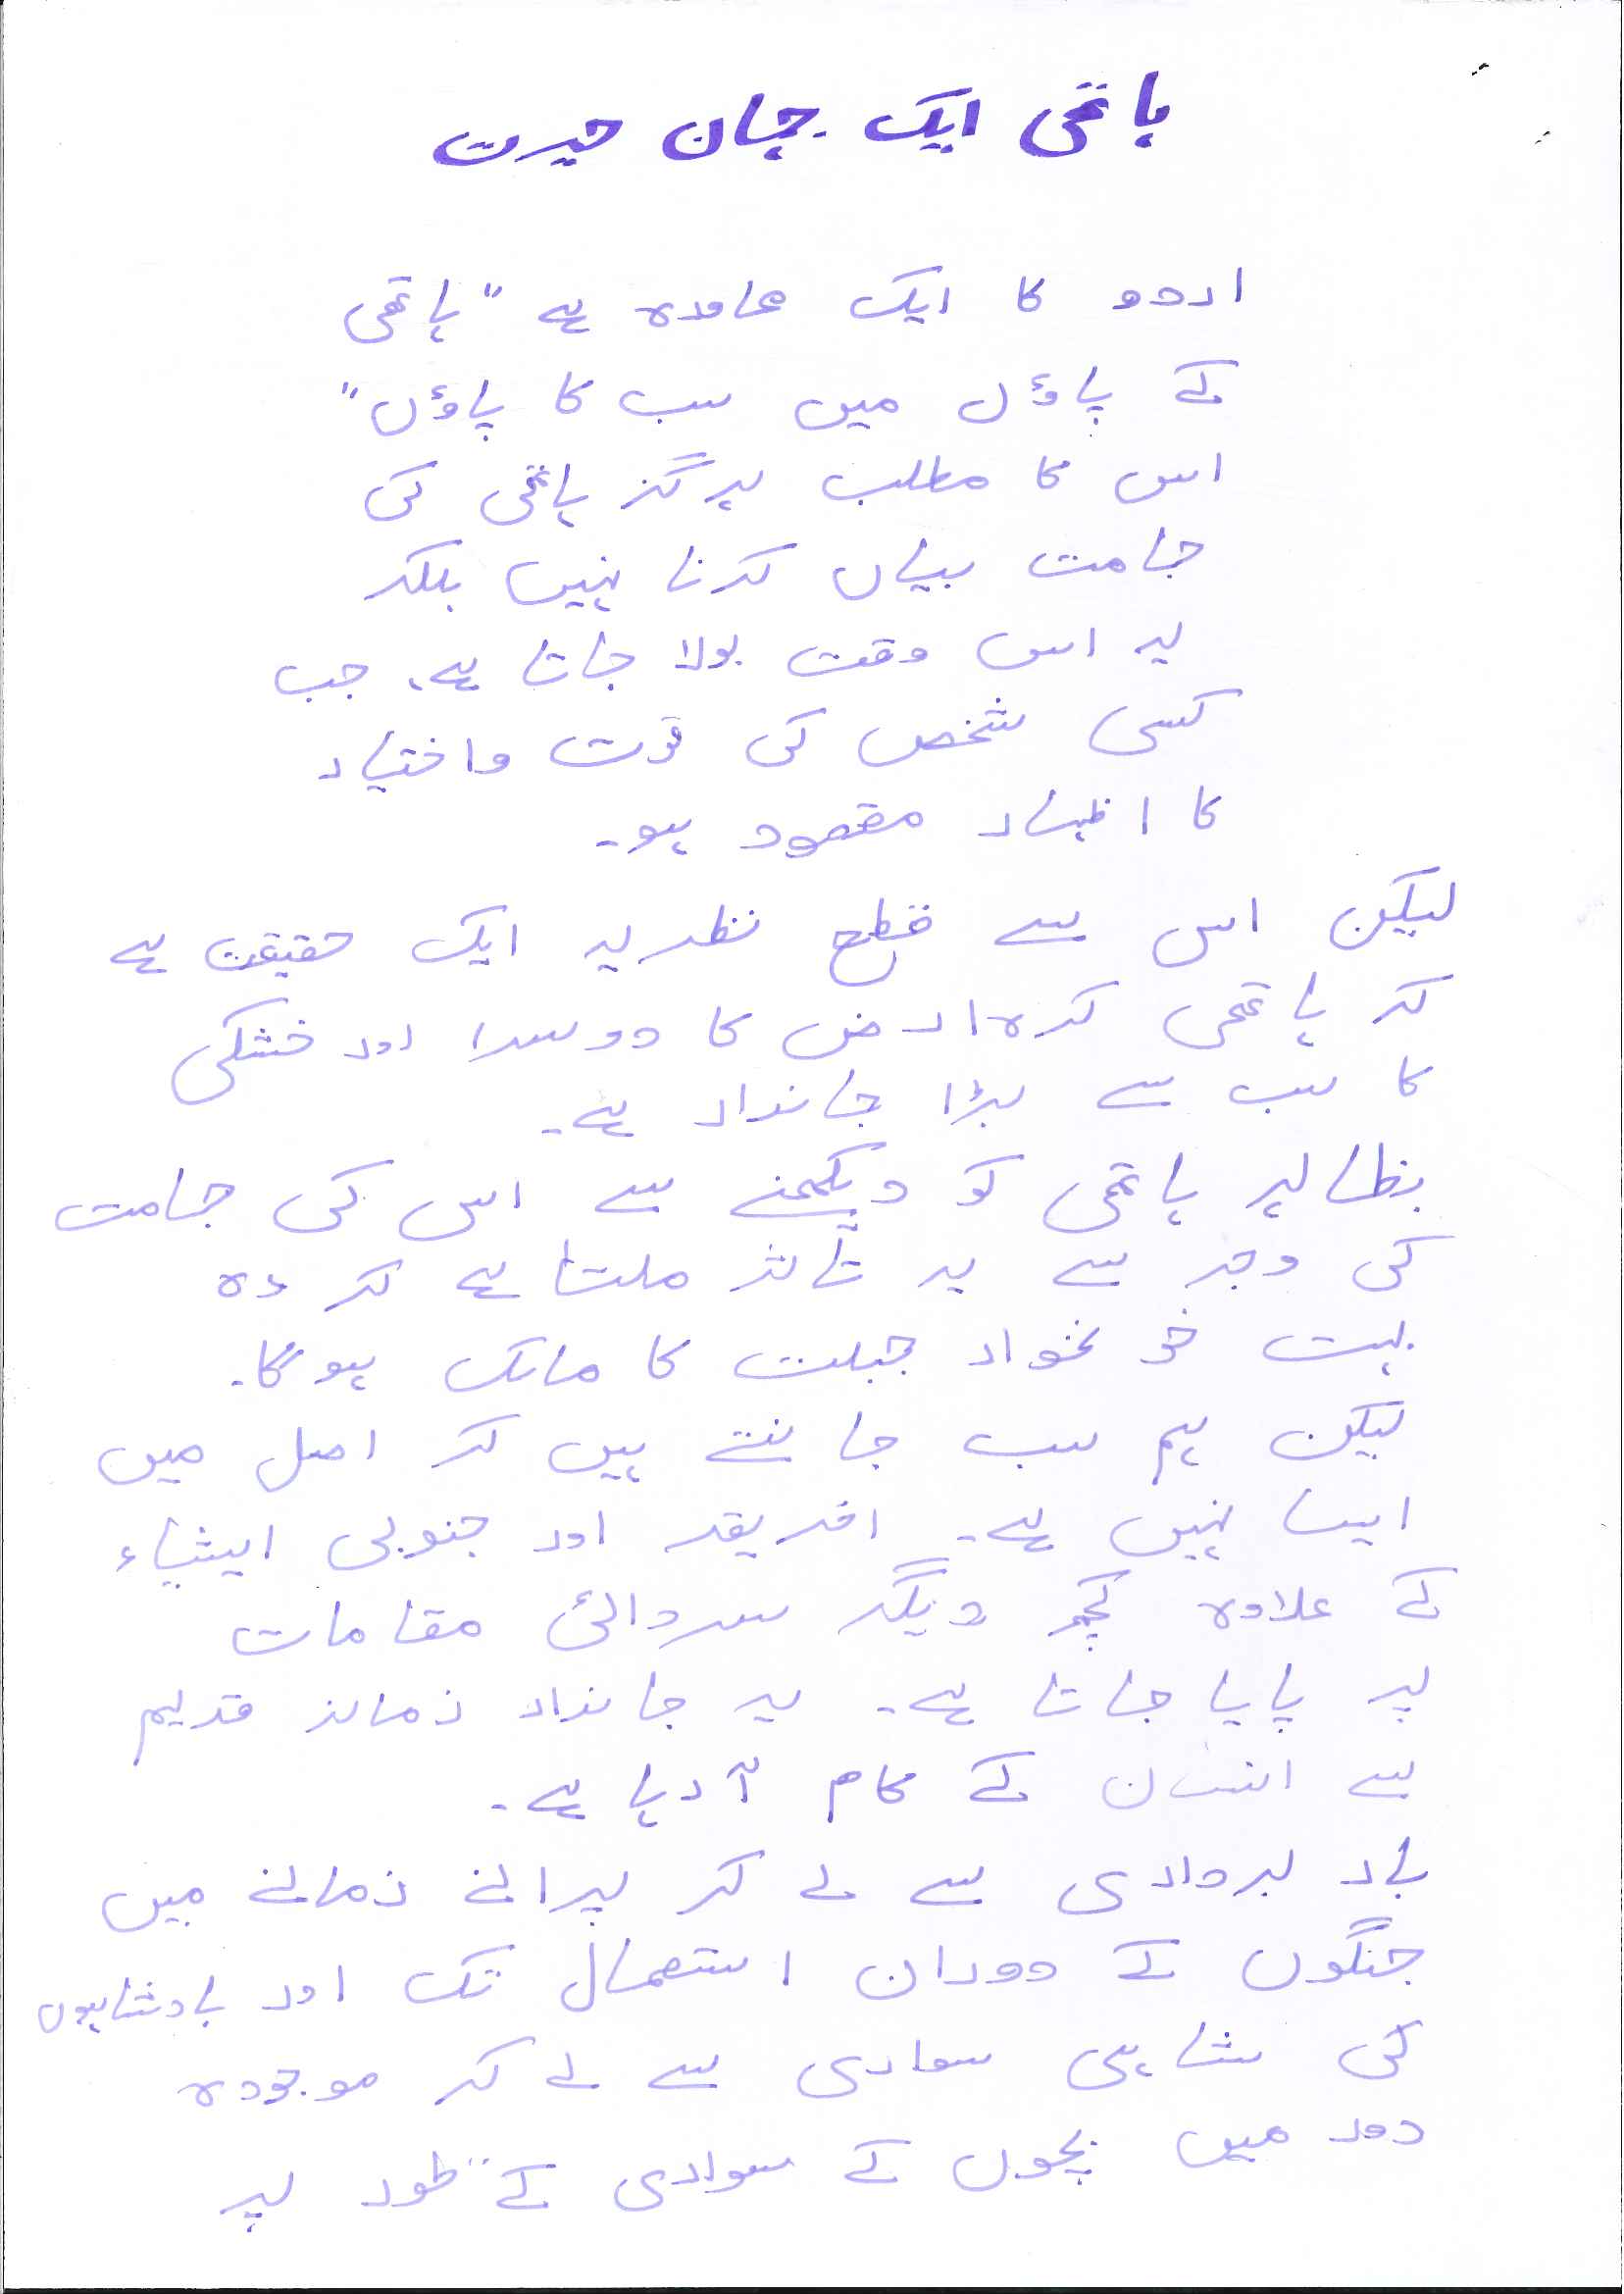 ہاتھی ایک جہان حیرت
اردو کا ایک محاورہ ہے "ہاتھی
کے پاؤں میں سب کا پاؤں"
اس کا مطلب ہرگز ہاتھی کی
جسامت بیان کرنا نہیں بلکہ
یہ اس وقت بولا جاتا ہے، جب
کسی شخص کی قوت واختیار
کا اظہار مقصود ہو۔
لیکن اس سے قطع نظر یہ ایک حقیقت ہے
کہ ہاتھی کرہ ارض کا دوسرا اور خشکی
کا سب سے بڑا جاندار ہے۔
بظاہر ہاتھی کو دیکھنے سے اس کی جسامت
کی وجہ سے یہ تأثر ملتا ہے کہ وہ
بہت خونخوار جبلت کا مالک ہوگا۔
لیکن ہم سب جانتے ہیں کہ اصل میں
ایسا نہیں ہے۔ افریقہ اور جنوبی ایشیاء
کے علاوہ کچھ دیگر سردائی مقامات
پر پایا جاتا ہے۔ یہ جاندار زمانہ قدیم
سے انسان کے کام آرہا ہے۔
بار برداری سے لے کر پرانے زمانے میں
جنگوں کے دوران استعمال تک اور بادشاہوں
کی شاہی سواری سے لے کر موجودہ
دور میں بچوں کے سواری کے طور پر